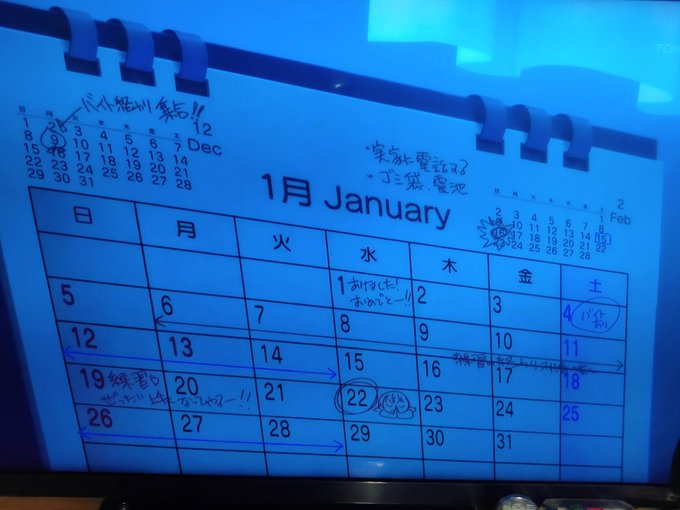 バイト終わり集合!!
12
Dec
日 月 火 水 木 金 土
1 2 3 4 5 6 7
8 9 10 11 12 13 14
15 16 17 18 19 20 21
22 23 24 25 26 27 28
29 30 31
・実家に電話する
・ゴミ袋、電池
1月 January
2
Feb
1
2 3 4 5 6 7 8
10 11 12 13 14 15
17 18 19 20 21 22
24 25 26 27 28
日 月 火 水 木 金 土
1 あけました!
おめでとー!!
2 3 4 バイト
あり
5 6 7 8 9 10 11
12 13 14 15 16 17 18
19 練習♡
ぜったい上手くなってやるー!!
20 21 22 23 24 25
26 27 28 29 30 31